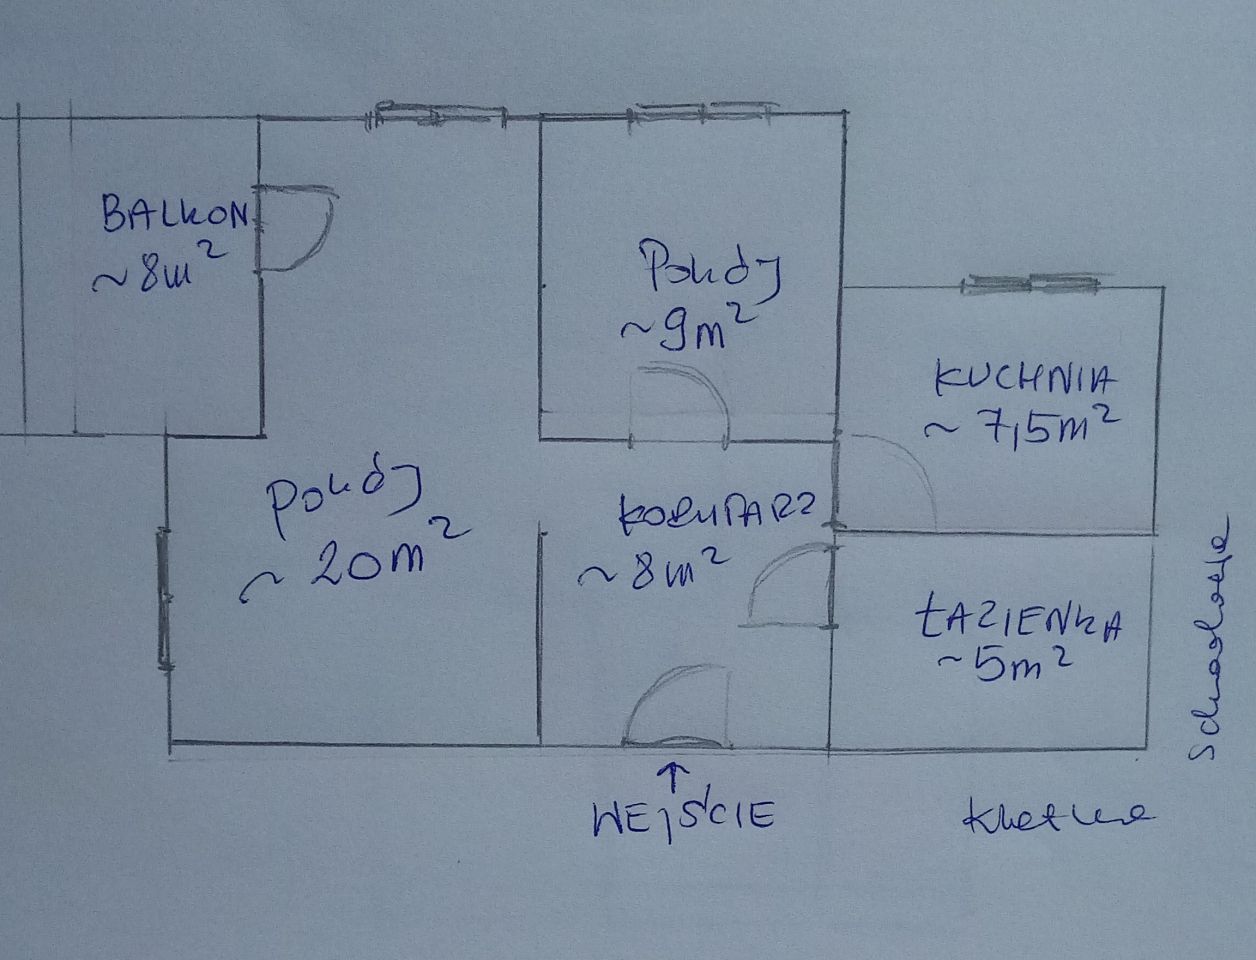 BALKON
~8m²
Pokój
~9m²
KUCHNIA
~7,5m²
Pokój
~20m²
KORYTARZ
~8m²
ŁAZIENKA
~5m²
WEJŚCIE
Klatka
Schodowa